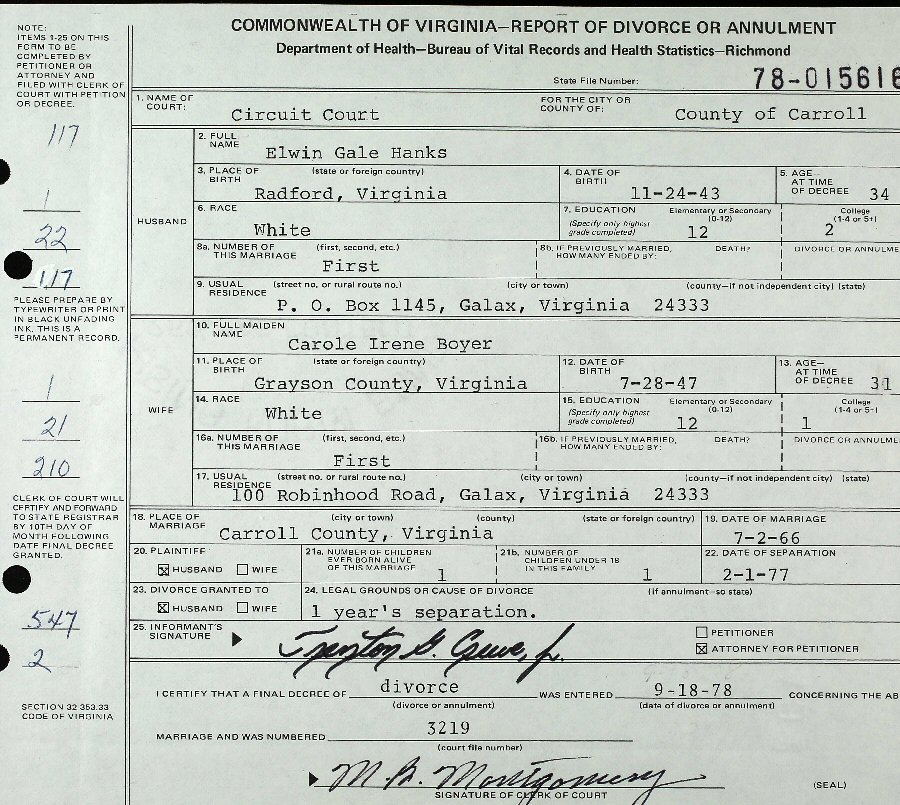 COMMONWEALTH OF VIRGINIA—REPORT OF DIVORCE OR ANNULMENT
Department of Health—Bureau of Vital Records and Health Statistics—Richmond
State File Number: 78-015616
NOTE:
ITEMS 1-25 ON THIS
FORM TO BE
COMPLETED BY
PETITIONER OR
ATTORNEY AND
FILED WITH CLERK OF
COURT WITH PETITION
OR DECREE.
117
1
22
117
PLEASE PREPARE BY
TYPEWRITER OR PRINT
IN BLACK UNFADING
INK. THIS IS A
PERMANENT RECORD.
1
21
210
CLERK OF COURT WILL
CERTIFY AND FORWARD
TO STATE REGISTRAR
BY 10TH DAY OF
MONTH FOLLOWING
DATE FINAL DECREE
GRANTED.
547
2
SECTION 32 353.33
CODE OF VIRGINIA
1. NAME OF COURT: Circuit Court FOR THE CITY OR COUNTY OF: County of Carroll
HUSBAND
2. FULL NAME Elwin Gale Hanks
3. PLACE OF BIRTH (state or foreign country) Radford, Virginia
4. DATE OF BIRTH 11-24-43
5. AGE— AT TIME OF DECREE 34
6. RACE White
7. EDUCATION (Specify only highest grade completed) Elementary or Secondary (0-12) 12 College (1-4 or 5+) 2
8a. NUMBER OF THIS MARRIAGE (first, second, etc.) First
8b. IF PREVIOUSLY MARRIED, HOW MANY ENDED BY: DEATH? DIVORCE OR ANNULME
9. USUAL RESIDENCE (street no. or rural route no.) (city or town) (county—if not independent city) (state)
P. O. Box 1145, Galax, Virginia 24333
WIFE
10. FULL MAIDEN NAME Carole Irene Boyer
11. PLACE OF BIRTH (state or foreign country) Grayson County, Virginia
12. DATE OF BIRTH 7-28-47
13. AGE— AT TIME OF DECREE 31
14. RACE White
15. EDUCATION (Specify only highest grade completed) Elementary or Secondary (0-12) 12 College (1-4 or 5+) 1
16a. NUMBER OF THIS MARRIAGE (first, second, etc.) First
16b. IF PREVIOUSLY MARRIED, HOW MANY ENDED BY: DEATH? DIVORCE OR ANNULME
17. USUAL RESIDENCE (street no. or rural route no.) (city or town) (county—if not independent city) (state)
100 Robinhood Road, Galax, Virginia 24333
18. PLACE OF MARRIAGE (city or town) (county) (state or foreign country) Carroll County, Virginia
19. DATE OF MARRIAGE 7-2-66
20. PLAINTIFF ☒ HUSBAND ☐ WIFE
21a. NUMBER OF CHILDREN EVER BORN ALIVE OF THIS MARRIAGE 1
21b. NUMBER OF CHILDREN UNDER 18 IN THIS FAMILY 1
22. DATE OF SEPARATION 2-1-77
23. DIVORCE GRANTED TO ☒ HUSBAND ☐ WIFE
24. LEGAL GROUNDS OR CAUSE OF DIVORCE (If annulment—so state)
1 year's separation.
25. INFORMANT'S SIGNATURE ☐ PETITIONER
☒ ATTORNEY FOR PETITIONER
I CERTIFY THAT A FINAL DECREE OF divorce WAS ENTERED 9-18-78 CONCERNING THE AB
(divorce or annulment) (date of divorce or annulment)
MARRIAGE AND WAS NUMBERED 3219
(court file number)
Montgomery
SIGNATURE OF CLERK OF COURT (SEAL)